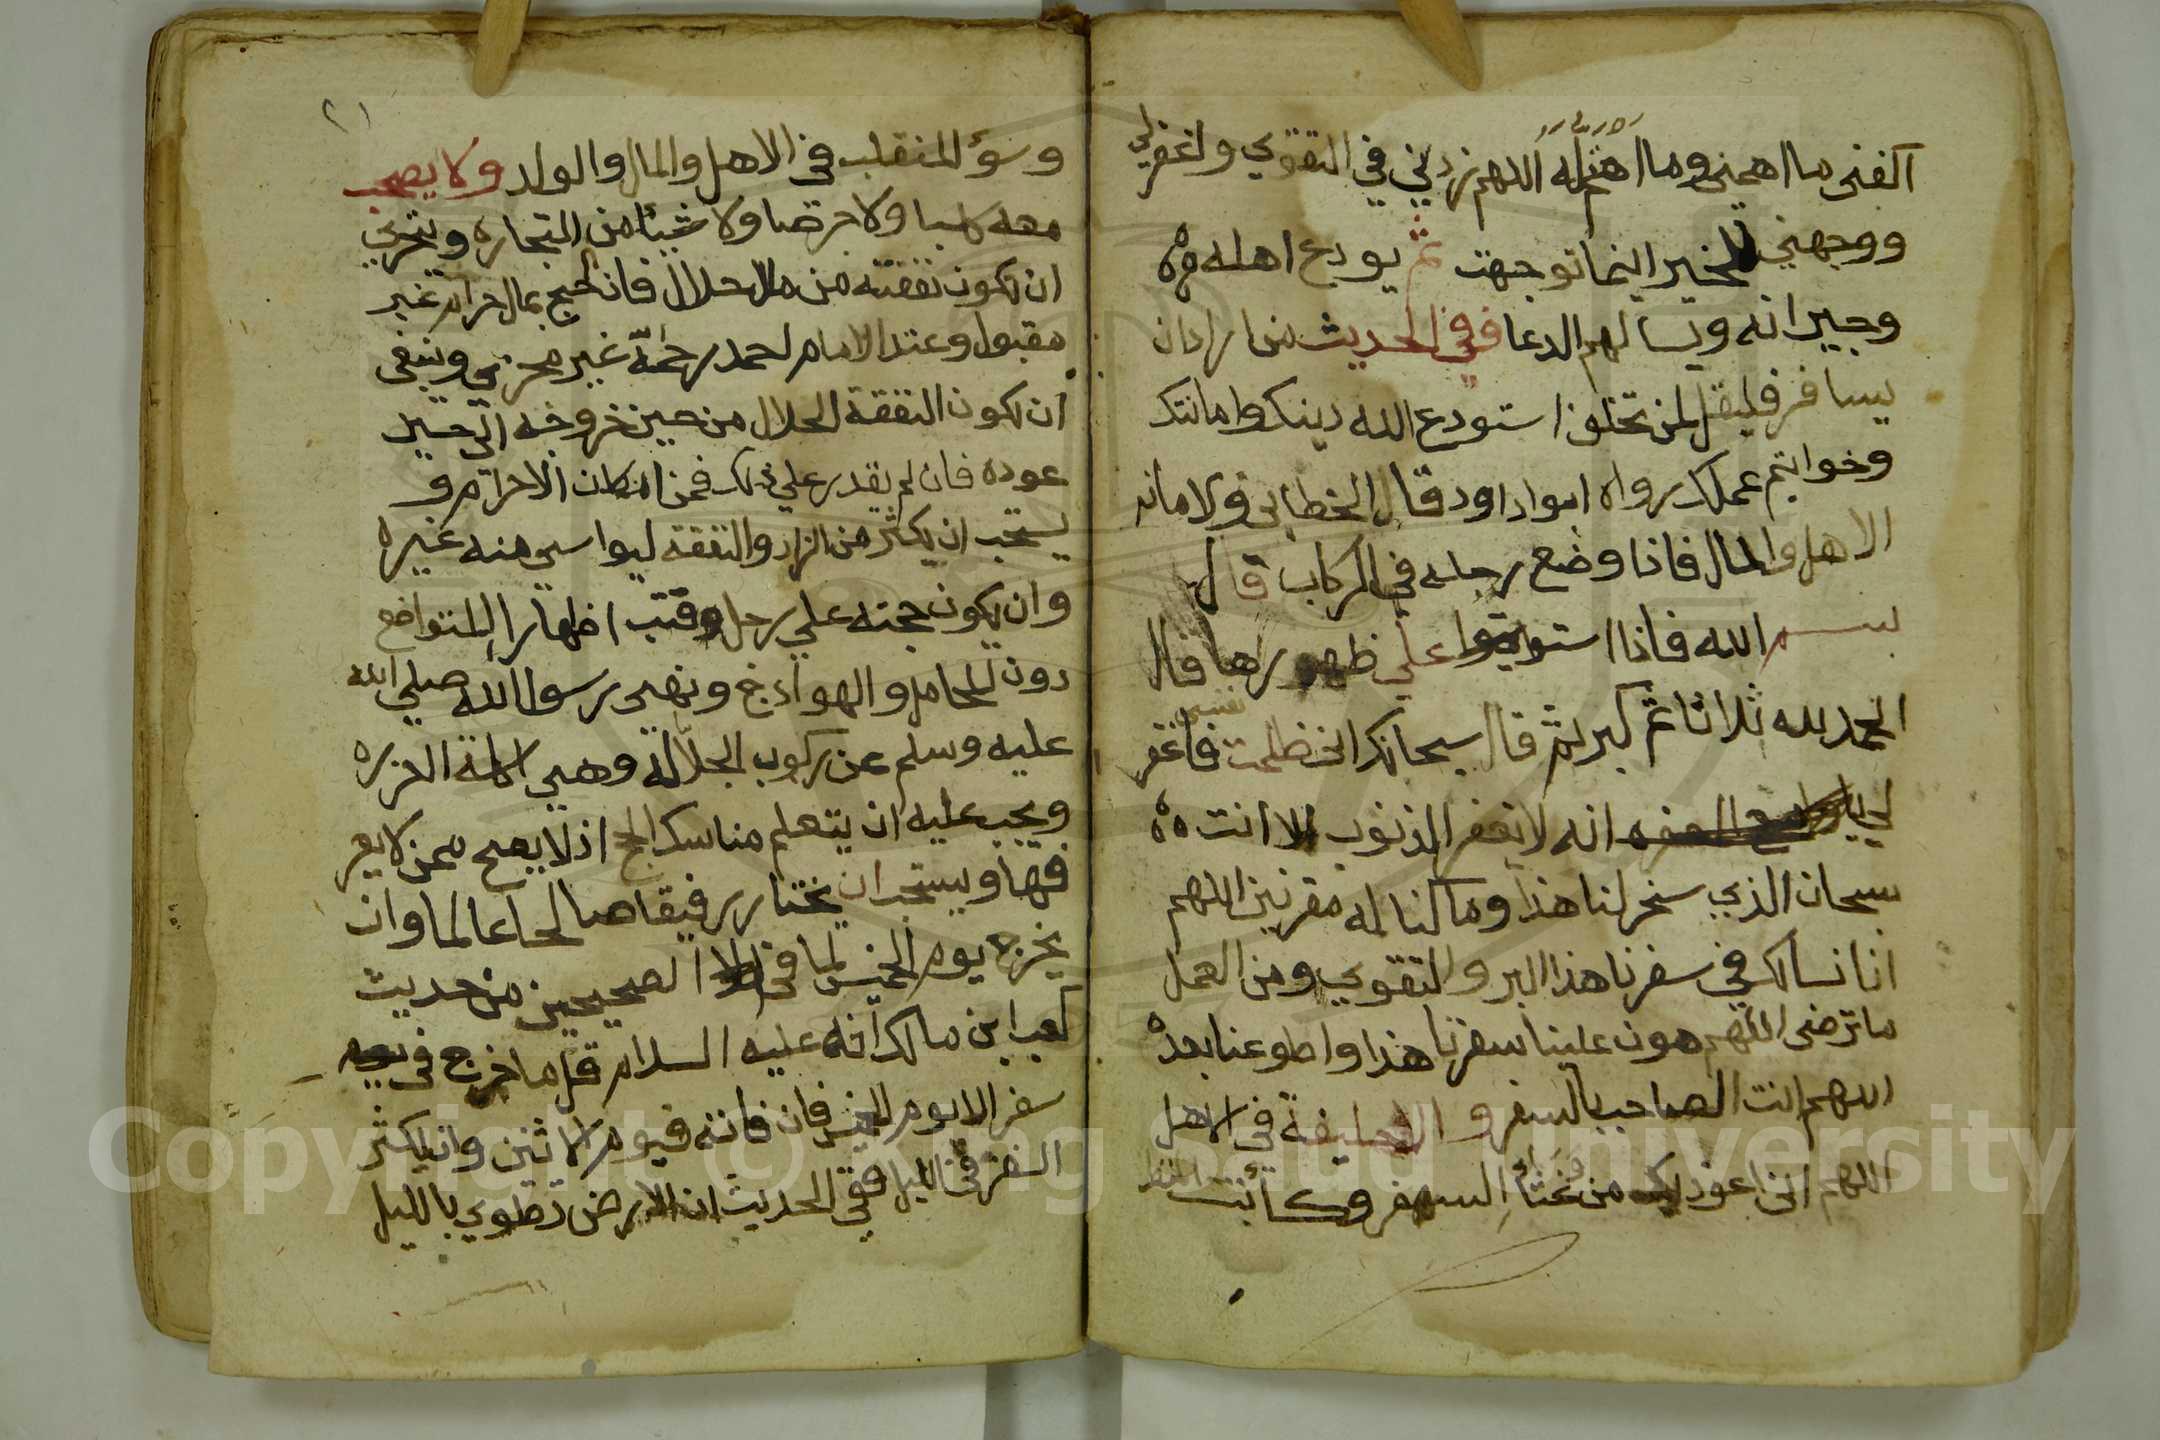 اكفني ما اهمني وما اهتم له اللهم زدني في التقوي واغفرلي
ووجهني للخير اينما توجهت ثم يودع اهله
وجيرانه ويسالهم الدعا ففي الحديث من اراد ان
يسافر فليقل لمن تخلف استودع الله دينك وامانتك
وخواتيم عملك رواه ابوا داود قال الخطابي ولامانه
الاهل والمال فاذا وضع رجله في الركاب قال
بسم الله فاذا استويتوا علي ظهورها قال
الحمد لله ثلاثا ثم كبر ثم قال سبحانك اني ظلمت نفسي فاغفر
لي انه لا يغفر الذنوب الا انت
سبحان الذي سخر لنا هذا وما كنا له مقرنين اللهم
انا نسالك في سفرنا هذا البر والتقوي ومن العمل
ما ترضى اللهم هون علينا سفرنا هذا واطو عنا بعده
اللهم انت الصاحب بالسفر والخليفة في الاهل
اللهم اني اعوذ بك من السفر وكابت المنظر
٢١
وسؤ المنقلب في الاهل والمال والولد ولا يصحب
معه كلبا ولا جرصا ولا شيئا من التجاره ويتحري
ان يكون نفقته من مال حلال فان الحج بمال حرام غير
مقبول وعند الامام احمد رحمة غير مجزي وينبغي
ان يكون النفقة الحلال من حين خروجه الي حين
عوده فان لم يقدر علي ذلك فمن امكان الاحرام و
يستحب ان يكثر من الزاد والنفقة ليواسي منه غيره
وان يكون حجته علي رحل وقتب اظهارا للتواضع
دون المحامل والهوادج ونهى رسوا الله صلي الله
عليه وسلم عن ركوب الجلالة وهي
ويجب عليه ان يتعلم مناسك الحج اذ لا يصح ممن لا يعر
فها ويستحب ان يختار رفيقا صالحا عالما وان
يخرج يوم الخميس لما في الصحيحين من حديث
كعب ابن مالك انه عليه السلام قل ما خرج في
سفر الا يوم الخميس فان فاته فيوم الاثنين وان يكثر
السفر في الليل ففي الحديث ان الارض تطوي بالليل
Copyright © King Saud University